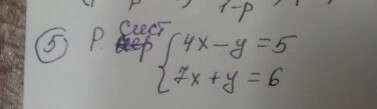 1-p
⑤ Р. сист { 4x - y = 5
7x + y = 6